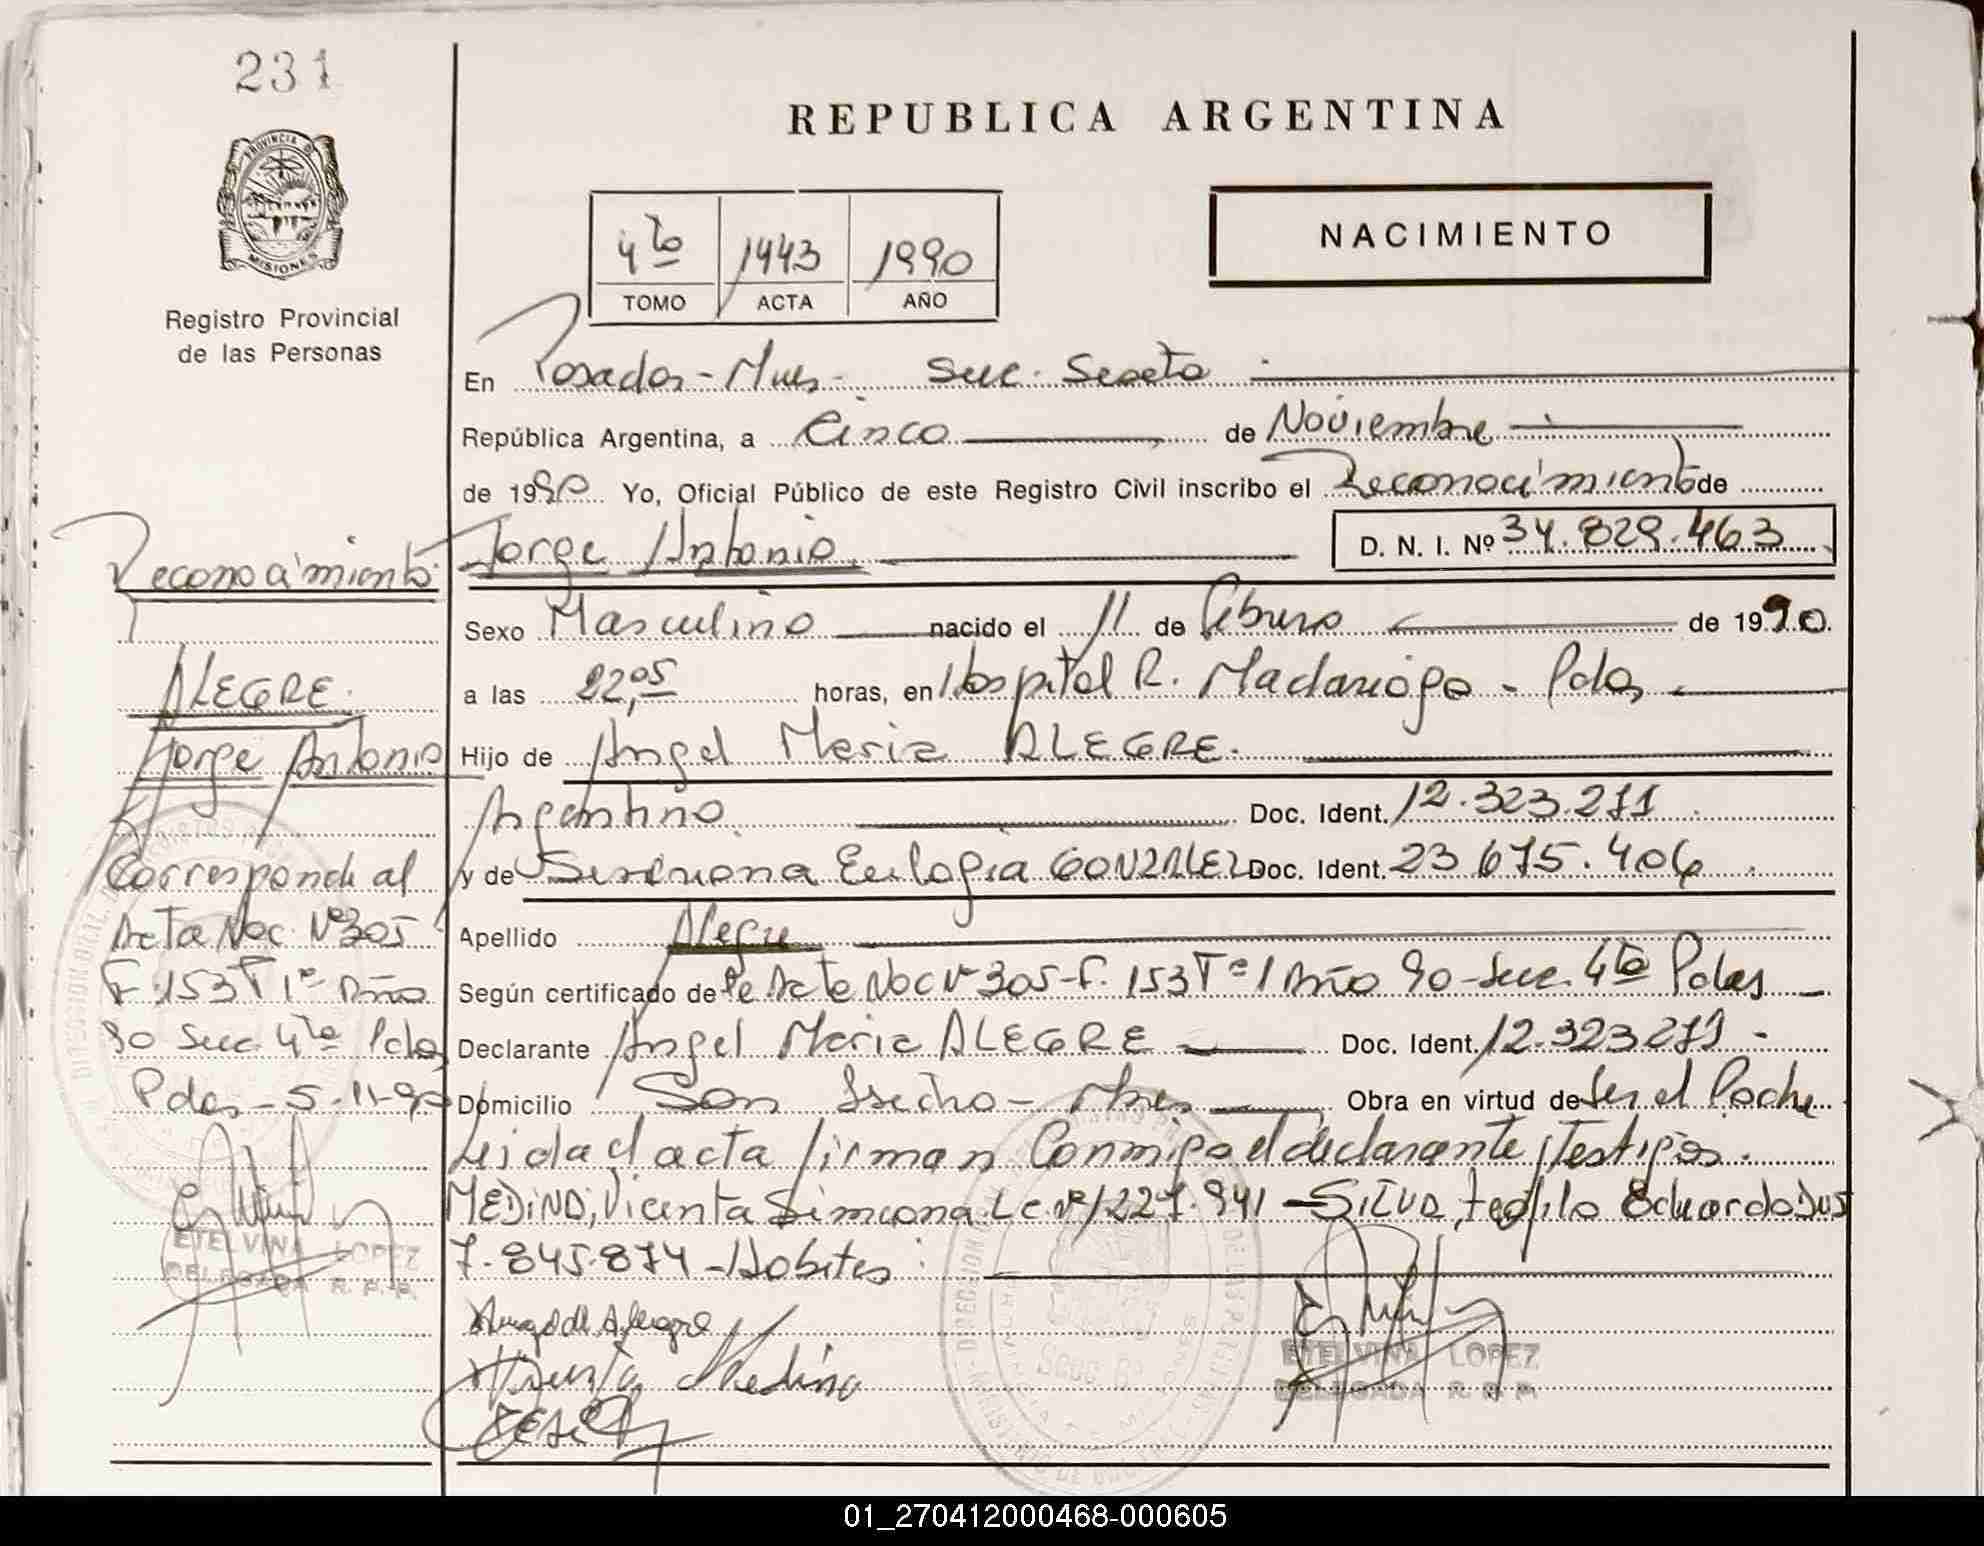 231
REPUBLICA ARGENTINA
PROVINCIA DE
MISIONES
Registro Provincial
de las Personas
4to 1443 1990
TOMO ACTA AÑO
NACIMIENTO
En Posadas - Mnes - Suc. Sexta
República Argentina, a Cinco de Noviembre
de 1990 Yo, Oficial Público de este Registro Civil inscribo el Reconocimiento de
Jorge Antonio D. N. I. Nº 34.829.463
Sexo Masculino nacido el 11 de Febrero de 1990.
a las 22,05 horas, en Hospital R. Madariaga - Pdas
Hijo de Angel Maria ALEGRE.
Argentino Doc. Ident. 12.323.271
y de Eulogia GONZALEZ Doc. Ident. 23.675.406
Apellido Alegre
Según certificado de la Acta Nac Nº 305 - F. 153 Tº 1 Año 90 - Suc. 4ta Pdas
Declarante Angel Maria ALEGRE Doc. Ident. 12.323.271 -
Domicilio San Isidro - Mnes Obra en virtud de Ser el Padre
Leida el acta firman Conmigo el declarante y testigos.
MEDINA, Vicenta Simeona L.C. Nº 1227.941 - SILVA, Teofilo Eduardo DNI
7.845.874 - Habites
Reconocimiento
ALEGRE.
Jorge Antonio
Corresponde al
Acta Nac Nº 305
F. 153 Tº 1º Año
90 Suc. 4ta Pdas
Pdas - 5-11-90
ETELVINA LOPEZ
DELEGADA R. P. P.
Vicenta Medina
ETELVINA LOPEZ
DELEGADA R. P. P.
01_270412000468-000605